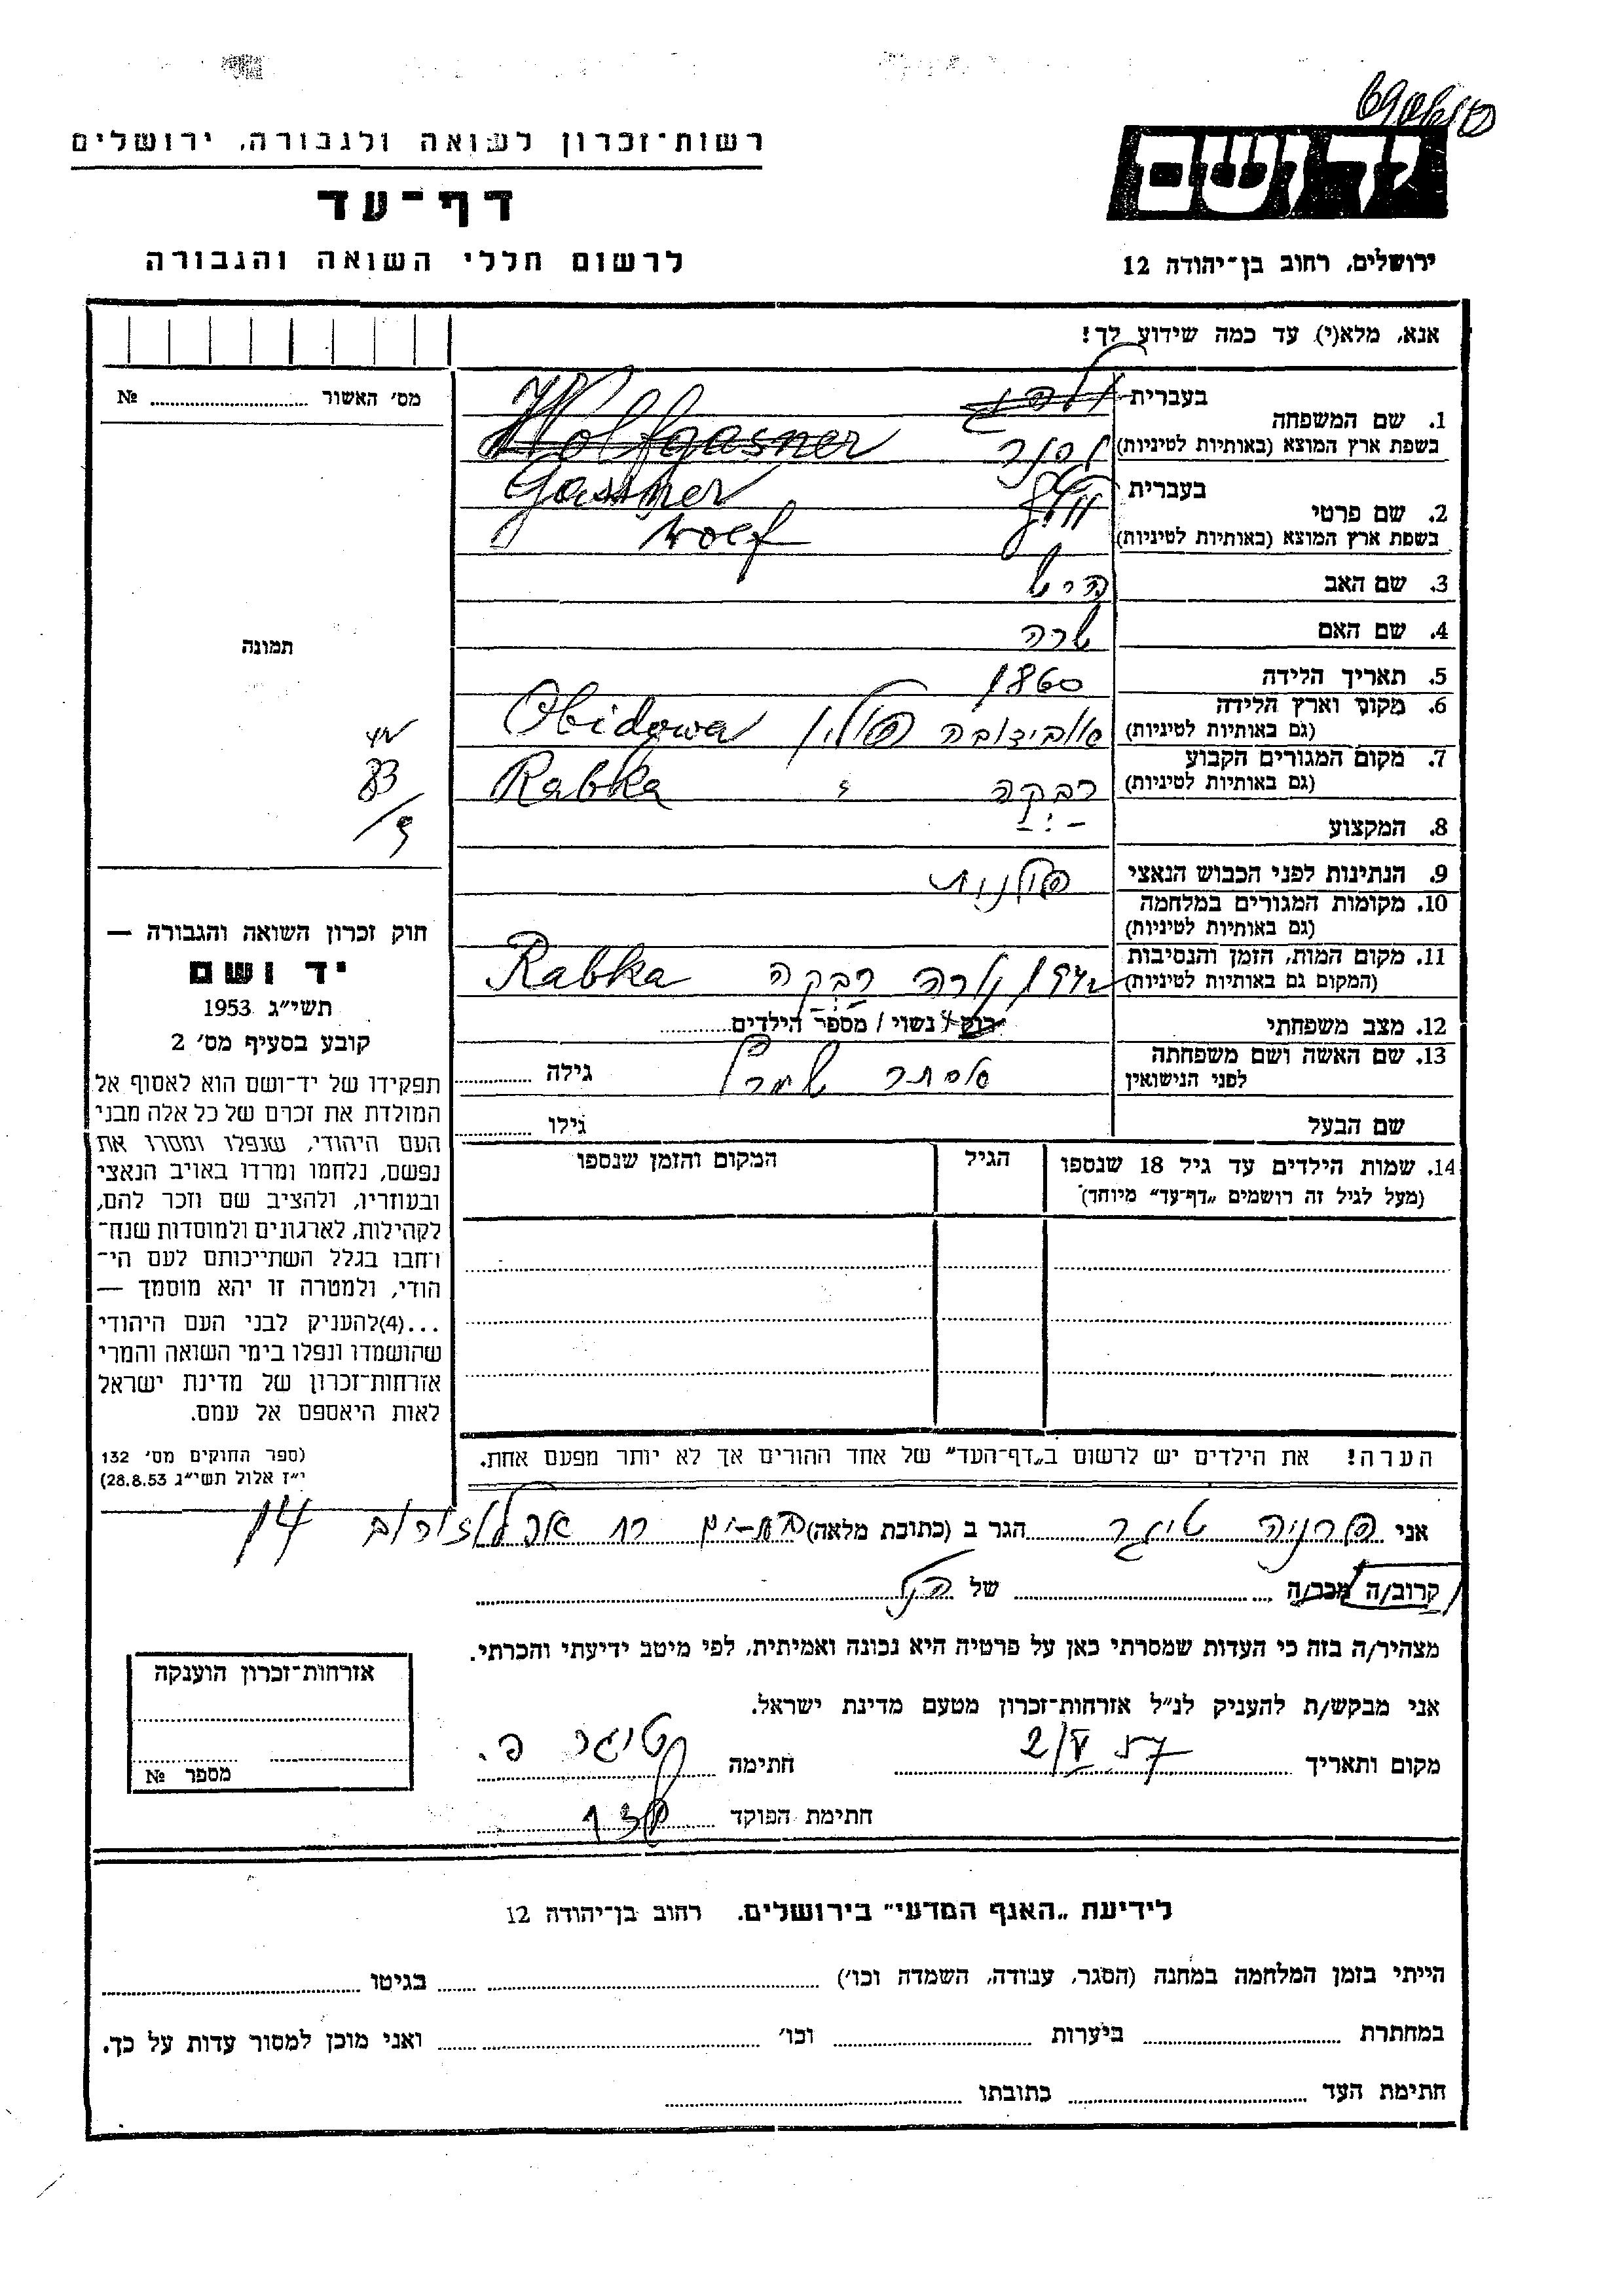 רשות־זכרון לשואה ולגבורה, ירושלים
דף־עד
לרשום חללי השואה והגבורה
יד ושם
ירושלים, רחוב בן־יהודה 12
אנא, מלא(י) עד כמה שידוע לך!
מס' האשור № ........
1. שם המשפחה
בעברית
בשפת ארץ המוצא (באותיות לטיניות)
Wolfgasner
Gassner
2. שם פרטי
בעברית וולף
בשפת ארץ המוצא (באותיות לטיניות) Wolf
3. שם האב הרש
4. שם האם שרה
5. תאריך הלידה 1860
6. מקום וארץ הלידה
(גם באותיות לטיניות) אובידובה פולין Obidowa
7. מקום המגורים הקבוע
(גם באותיות לטיניות) רבקה " Rabka
8. המקצוע
9. הנתינות לפני הכבוש הנאצי פולנית
10. מקומות המגורים במלחמה
(גם באותיות לטיניות)
11. מקום המות, הזמן והנסיבות
(המקום גם באותיות לטיניות) רבקה Rabka
12. מצב משפחתי רוק / נשוי / מספר הילדים ........
13. שם האשה ושם משפחתה
לפני הנישואין אסתר גילה ........
שם הבעל גילו ........
14. שמות הילדים עד גיל 18 שנספו
(מעל לגיל זה רושמים "דף־עד" מיוחד)
הגיל
המקום והזמן שנספו
הערה! את הילדים יש לרשום ב"דף־העד" של אחד ההורים אך לא יותר מפעם אחת.
תמונה
83
חוק זכרון השואה והגבורה —
יד ושם
תשי"ג 1953
קובע בסעיף מס' 2
תפקידו של יד־ושם הוא לאסוף אל
המולדת את זכרם של כל אלה מבני
העם היהודי, שנפלו ומסרו את
נפשם, נלחמו ומרדו באויב הנאצי
ובעוזריו, ולהציב שם וזכר להם,
לקהילות, לארגונים ולמוסדות שנח־
רבו בגלל השתייכותם לעם הי־
הודי, ולמטרה זו יהא מוסמך —
...(4)להעניק לבני העם היהודי
שהושמדו ונפלו בימי השואה והמרי
אזרחות־זכרון של מדינת ישראל
לאות היאספם אל עמם.
(ספר החוקים מס' 132
י"ז אלול תשי"ג 28.8.53)
אני פרניה טיגר הגר ב (כתובת מלאה) בת־ים רח ארלוזורוב 14
קרוב/ה מכר/ה ........ של הנ"ל
מצהיר/ה בזה כי העדות שמסרתי כאן על פרטיה היא נכונה ואמיתית, לפי מיטב ידיעתי והכרתי.
אני מבקש/ת להעניק לנ"ל אזרחות־זכרון מטעם מדינת ישראל.
מקום ותאריך 2/V 57 חתימה טיגר פ.
חתימת הפוקד
אזרחות־זכרון הוענקה
מספר №
לידיעת "האגף המדעי" בירושלים. רחוב בן־יהודה 12
הייתי בזמן המלחמה במחנה (הסגר, עבודה, השמדה וכו') ........ בגיטו ........
במחתרת ........ ביערות ........ וכו' ........ ואני מוכן למסור עדות על כך.
חתימת העד ........ כתובתו ........